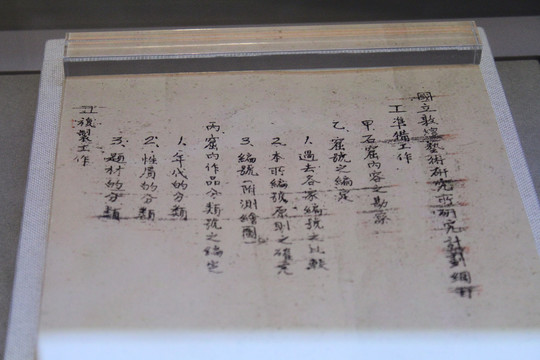 國立敦煌藝術研究所研究計劃綱要
工準備工作
甲石窟內容之勘察
乙、窟號之編定
1.過去各家編號之比較
2.本所編號原則之確定
3.編號附測繪圖
丙、窟內作品分類號之編定
1.年代的分類
2.性質的分類
3.題材的分類
II複製工作